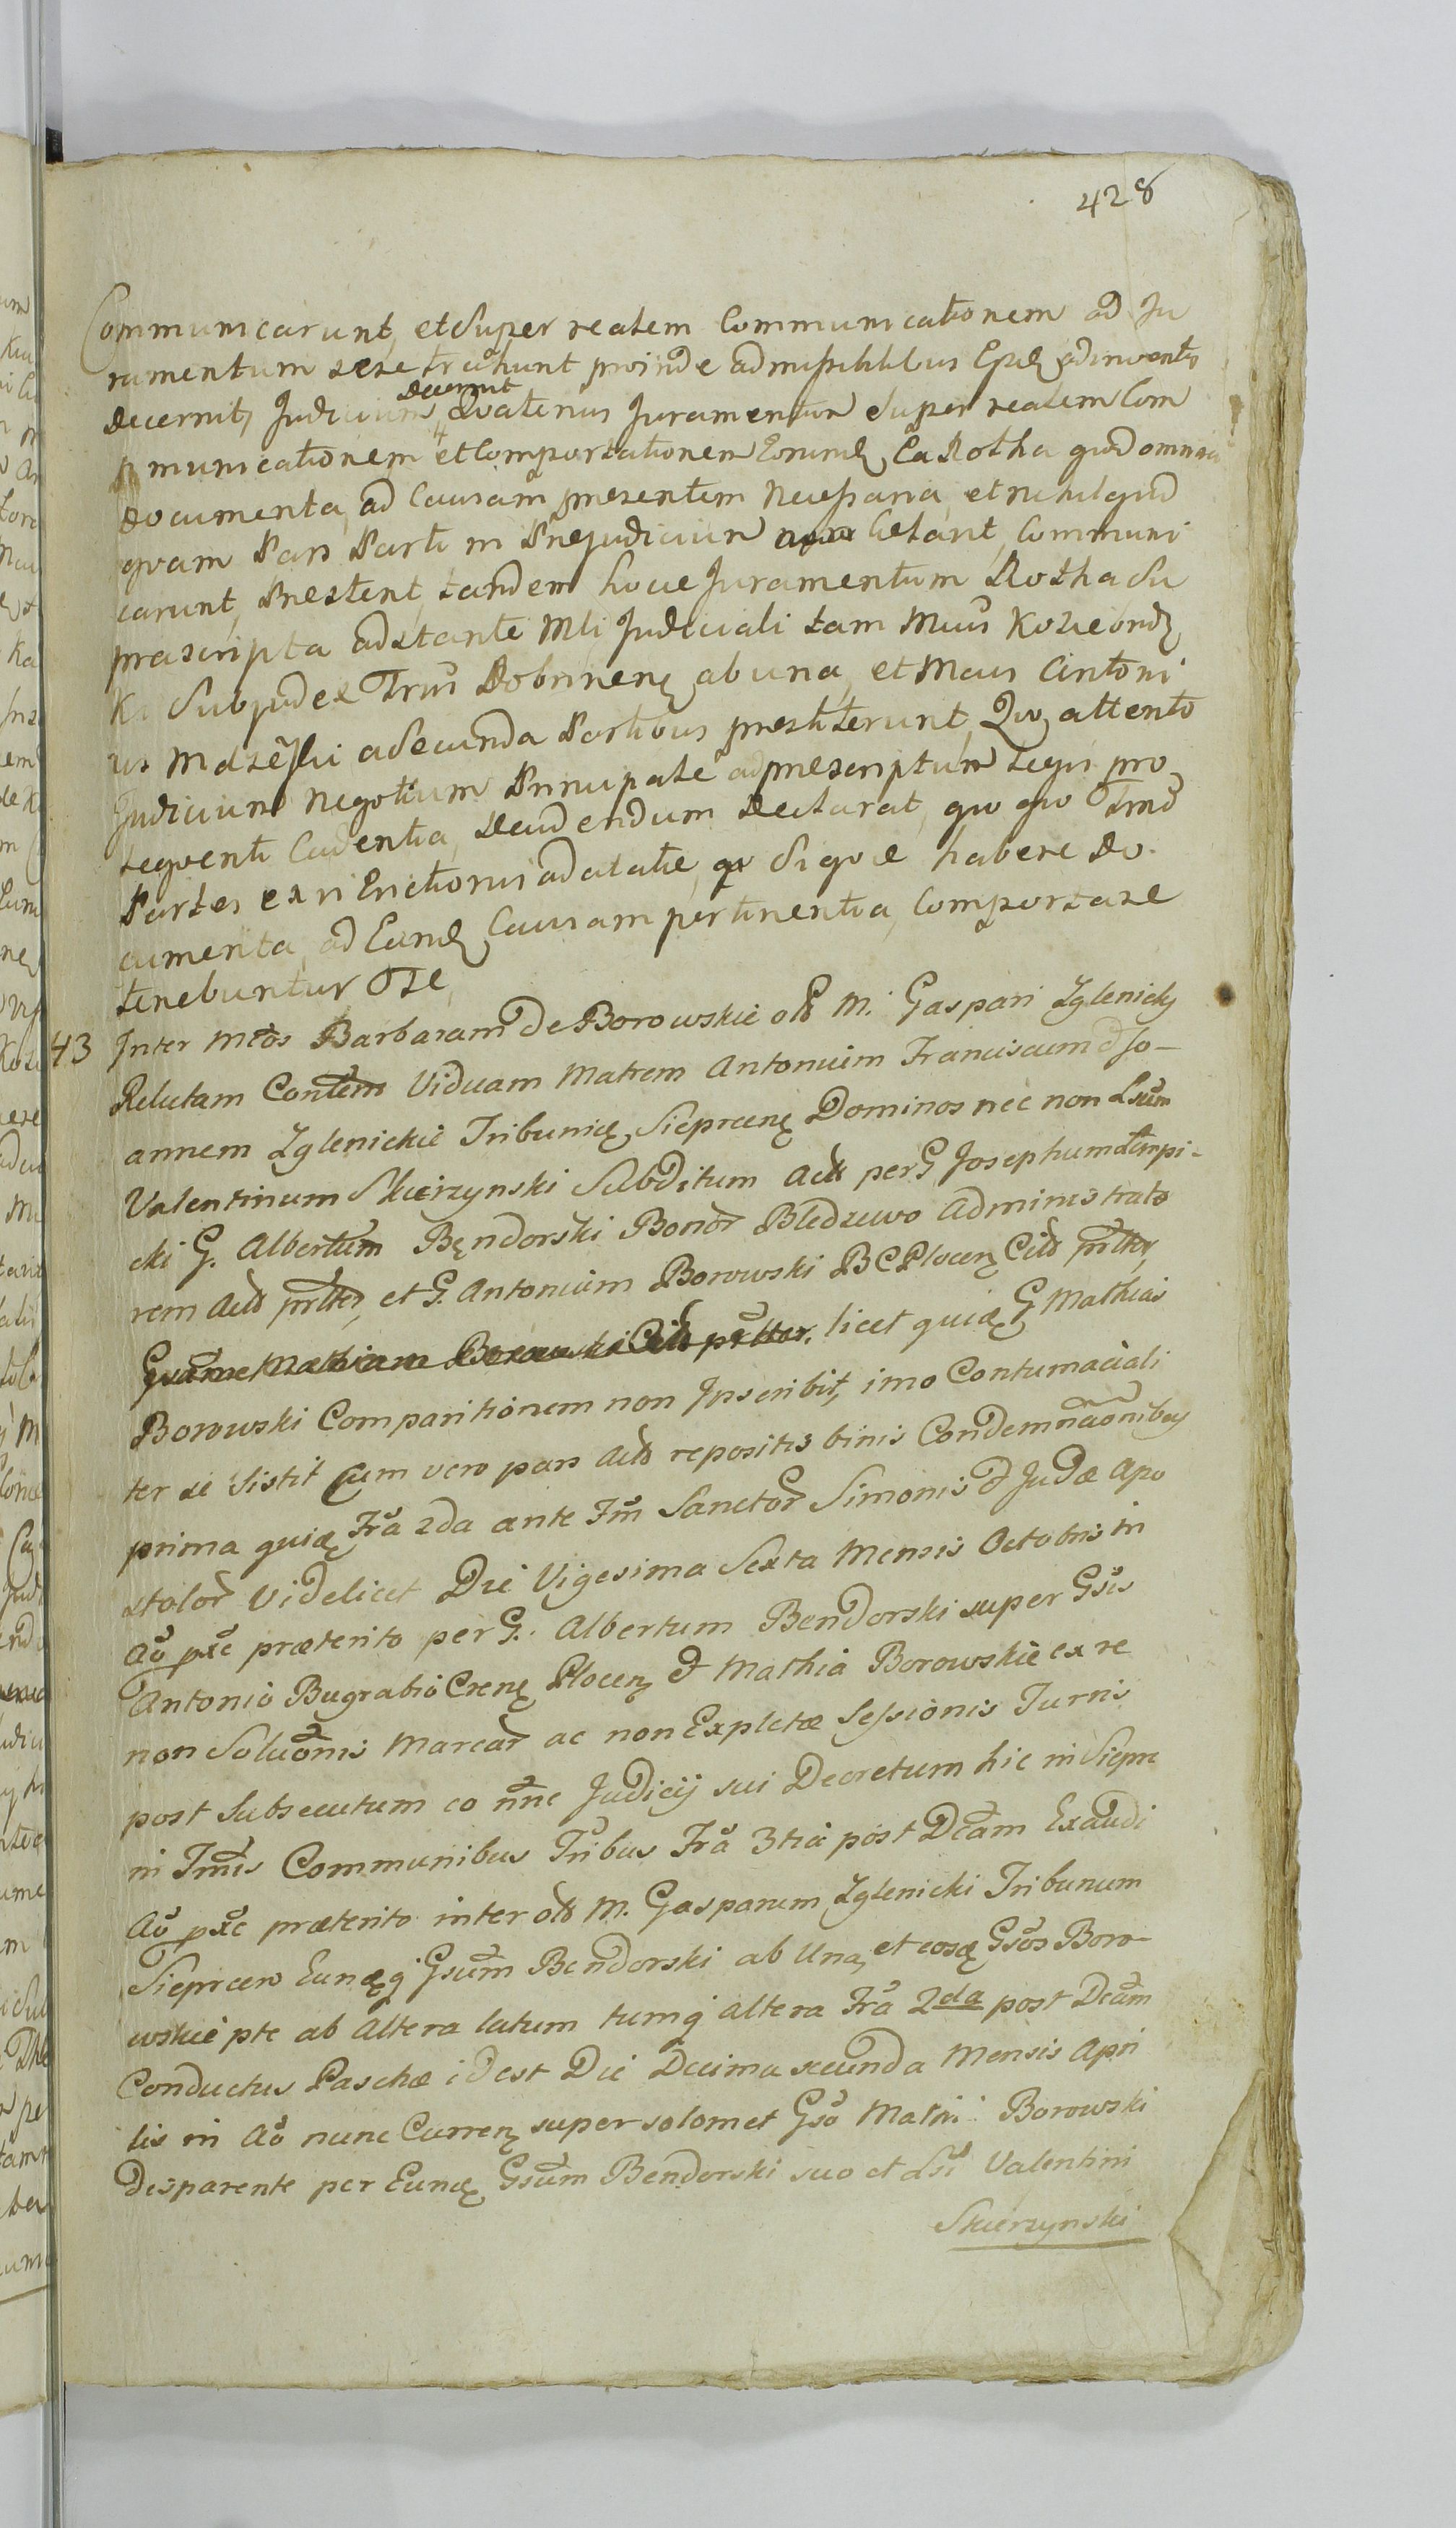 428
Communicarunt, et Super realem Communicationem ad Ju
ramentum sese trahunt proinde admissibilibus Ejusd adinventis
decernit
decernit, Judicium, Qvatenus Juramentum Super realem Com
municationem et Comportationem Eorund Ca Rotha quod omnia
documenta, ad Causam presentem Necessaria, et nihil quid
qvam Pars Parti in Prejudicium celant, Communi
carunt, Prestent, tandem hocce Juramentum Rotha Su
prascripta adstante Mli Judiciali tam Mcus Koziebrodz
Ki Subjudex Trris Dobrinen ab una, et Mcus Antoni
us a Secunda Partibus prestiterunt, Qvo attento
Judicium Negotium Principale ad prescriptum Legis pro
seqventi Cadentia, decidendum declarat, qvo
Partes ex vi Inctionis adcitatæ, Siqvæ habere do
cumenta, ad Eand Causam pertinentia, Comportare
tenebuntur
43 Inter Mcos Barbaram de Borowskie olb M. Gaspari Zglenicky
Relictam Contem Viduam Matrem Antonium Franciscum & Jo-
annem Zglenickie Tribunid Sieprcen Dominos nec non Lsum
Valentinum Skierzynski Subditum Actb per G Josephum Lempi-
cki G. Albertum Bendorski Bonor Bledzewo Administrato
rem Actb prltter, et G. Antonium Borowski BC Plocen Citb prltter,
Gsumet Mathiam Borowski Citb prltter. licet quid G Mathias
Borowski Comparitionem non Jnscribit, imo Contumaciali
ter se Sistit Cum vero pars Actb repositis binis Condemnaonibus
prima quid Fra 2da ante Fm Sanctor Simonis & Judæ Apo
stolor Videlicet Die Vigesima Sexta Mensis Octobris in
Ao pxe præterito per G. Albertum Bendorski super Gsis
Antonio Bugrabio Cren Plocen & Mathia Borowskie ex re
non Soluonis Marcar ac non Expletæ Sessionis Turris
post Subsecutum co nne Judicij sui Decretum hic in Siepre
in Tmis Communibus Tribus Fra 3tia post Dcam Exaudi
Ao pxe præterito inter olb M. Gasparum Zglenicki Tribunum
Sieprcen Eundq Gsum Bendorski ab Una, et eosd Gsos Boro-
wskie pte ab Altera latum tumq altera Fra 2da post Dcam
Conductus Paschæ idest Die Decima secunda Mensis Apri
lis in Ao nunc Curren super solomet Gso Mathi Borowski
disparente per Eund Gsum Bendorski suo et Lsi Valentini
Skierzynski